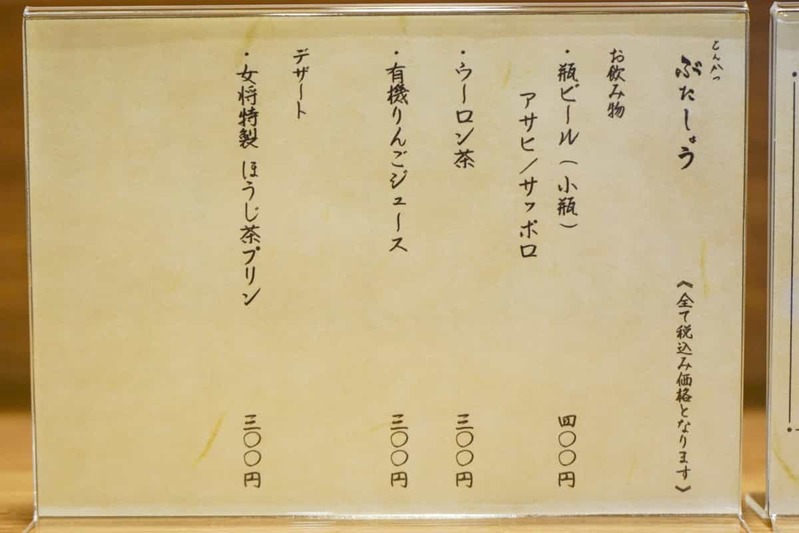 とんかつ
ぶたしょう
《全て税込み価格となります》
お飲み物
・瓶ビール(小瓶) 四〇〇円
アサヒ/サッポロ
・ウーロン茶 三〇〇円
・有機りんごジュース 三〇〇円
デザート
・女将特製 ほうじ茶プリン 三〇〇円